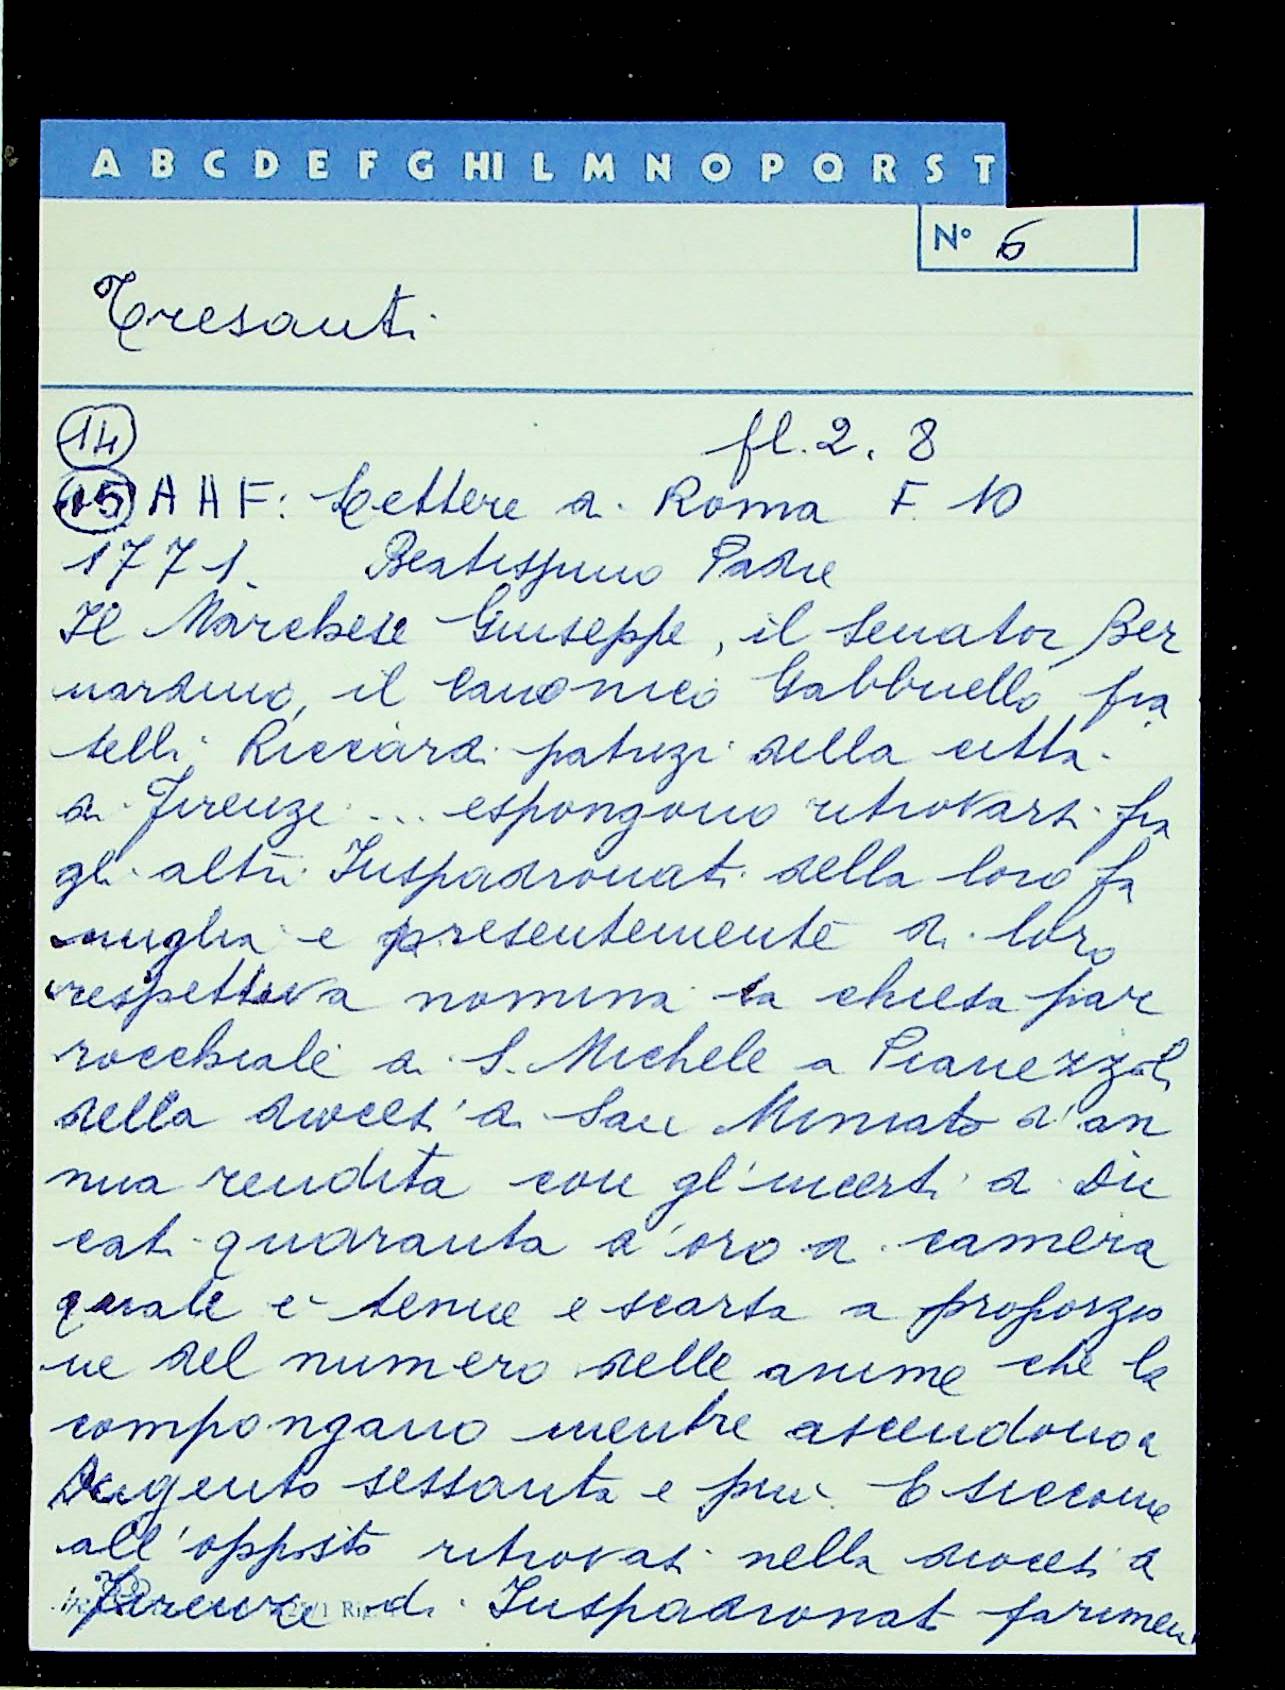 A B C D E F G HI L M N O P Q R S T
N° 6
Tresanti
14 fl. 2. 8
15 A A F: Lettere di Roma F. 10
1771. Beatissimo Padre
Il Marchese Giuseppe, il Senator Ber
nardino, il Canonico Gabbriello, fra
telli Riccardi patrizi della città
di Firenze ... espongono ritrovarsi fra
gli altri Juspadronati della loro fa
miglia e presentemente di loro
respettiva nomina la chiesa par
rocchiale di S. Michele a Pianezzoli
della diocesi di San Miniato d'an
nua rendita con gl'incerti di Du
cati quaranta d'oro di camera
quale è tenue e scarsa a proporzio
ne del numero delle anime che la
compongano mentre ascendono a
Dugento sessanta e più. E siccome
all'opposito ritrovasi nella diocesi di
Firenze di Juspadronati parimen